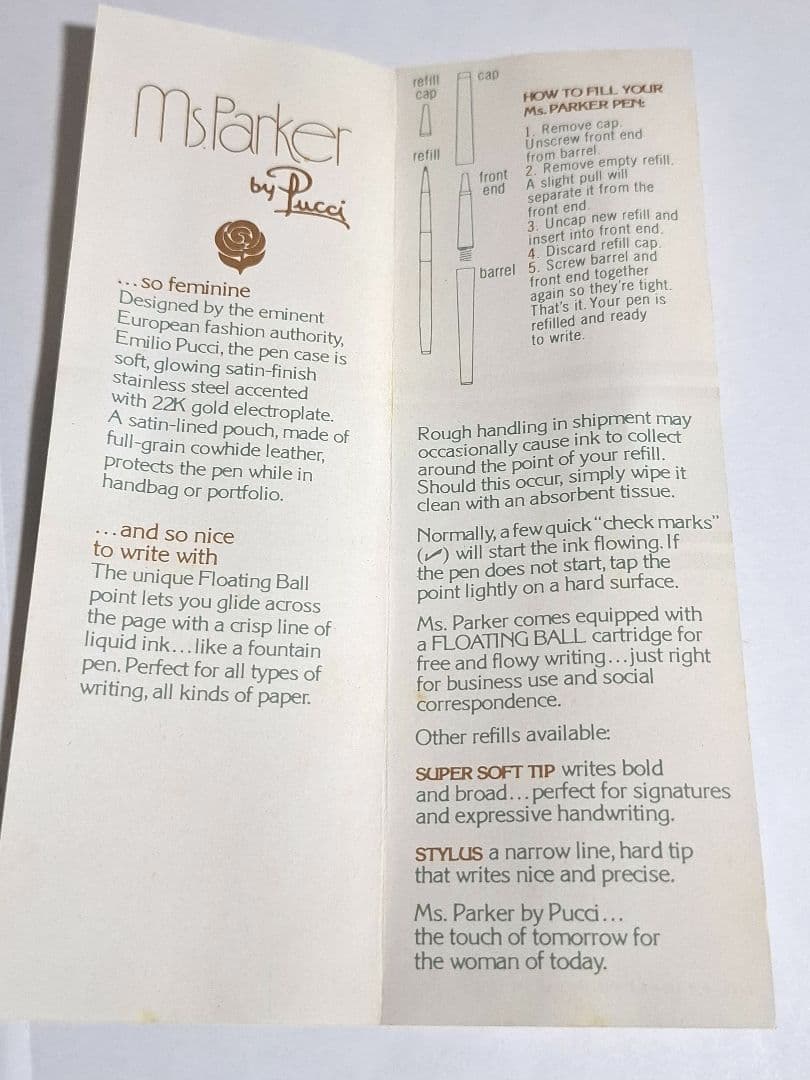 Ms. Parker
by Pucci
...so feminine
Designed by the eminent
European fashion authority,
Emilio Pucci, the pen case is
soft, glowing satin-finish
stainless steel accented
with 22K gold electroplate.
A satin-lined pouch, made of
full-grain cowhide leather,
protects the pen while in
handbag or portfolio.
...and so nice
to write with
The unique Floating Ball
point lets you glide across
the page with a crisp line of
liquid ink...like a fountain
pen. Perfect for all types of
writing, all kinds of paper.
refill
cap
cap
refill
front
end
barrel
HOW TO FILL YOUR
Ms. PARKER PEN:
1. Remove cap.
Unscrew front end
from barrel.
2. Remove empty refill.
A slight pull will
separate it from the
front end.
3. Uncap new refill and
insert into front end.
4. Discard refill cap.
5. Screw barrel and
front end together
again so they're tight.
That's it. Your pen is
refilled and ready
to write.
Rough handling in shipment may
occasionally cause ink to collect
around the point of your refill.
Should this occur, simply wipe it
clean with an absorbent tissue.
Normally, a few quick "check marks"
(✓) will start the ink flowing. If
the pen does not start, tap the
point lightly on a hard surface.
Ms. Parker comes equipped with
a FLOATING BALL cartridge for
free and flowy writing...just right
for business use and social
correspondence.
Other refills available:
SUPER SOFT TIP writes bold
and broad...perfect for signatures
and expressive handwriting.
STYLUS a narrow line, hard tip
that writes nice and precise.
Ms. Parker by Pucci...
the touch of tomorrow for
the woman of today.